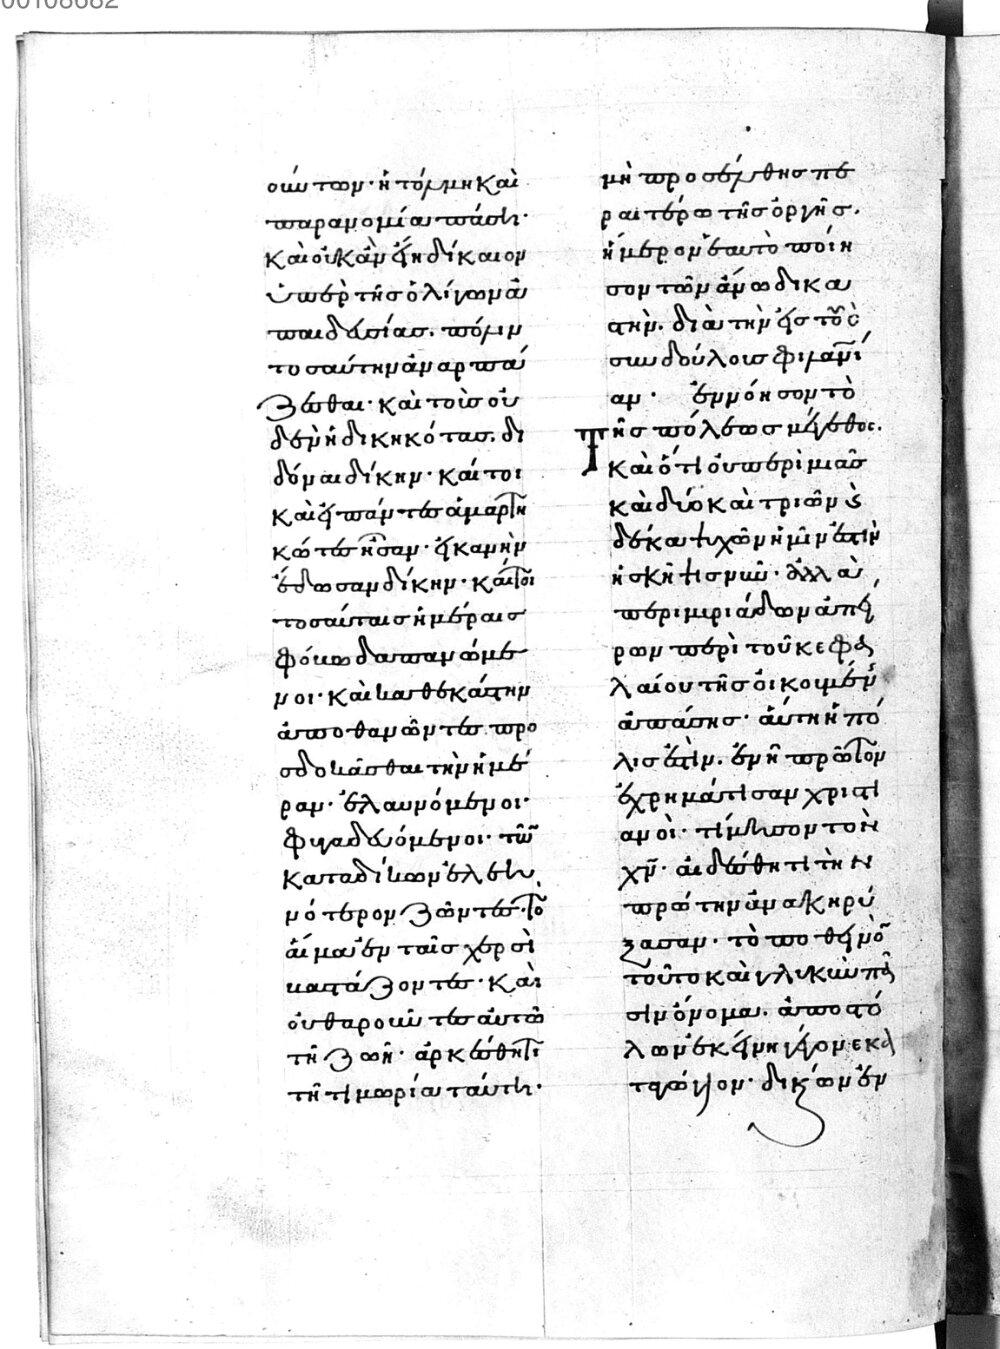 00108682
ούντων· ἡ τόλμη καὶ
παρανομία πᾶσιν·
καὶ οὐκ ἂν εἴη δίκαιον
ὑπὲρ τῆς ὀλίγων ἀ
παιδευσίας. πόλιν
τοσαύτην ἀναρπά
ζεσθαι· καὶ τοὺς οὐ
δὲν ἠδικηκότας. δι
δόναι δίκην· καίτοι
καὶ εἰ πάντες ἡμαρτη
κότες ἦσαν· ἱκανὴν
ἔδωσαν δίκην· καίτοι
τοσαύταις ἡμέραις
φόβω δαπανώμε
νοι· καὶ καθεκάστην
ἀποθανόντες προ
σδοκᾶσθαι τὴν ἡμέ
ραν. ἐλαυνόμενοι·
φυγαδευόμενοι· τῶν
καταδίκων ἐλεει
νότερον ζῶντες· τὸ
αἷμα ἐν ταῖς χερσὶ
κατάζοντες· καὶ
οὐ θαρροῦντες αὐτῶ
τῆ ζωῆ· ἀρκέσθητι
τῆ τιμωρία ταύτη·
μὴ προσέλθης πε
ραιτέρω τῆς ὀργῆς.
ἥμερον ἑαυτὸ ποίη
σον τῶν ἄνω δικα
στὴν. διὰ τὴν εἰς τοὺς
συνδούλους φιλανθρωπί
αν· ἐννόησον τὸ
τῆς πόλεως μέγεθος.
καὶ ὅτι οὐ περὶ μιᾶς
καὶ δύο καὶ τριῶν καὶ
δέκα ψυχῶν ἡμῖν ἐστὶν
ἡ σκέψις νῦν· ἀλλὰ
περὶ μυριάδων ἀπεί
ρων περὶ τοῦ κεφα
λαίου τῆς οἰκουμένης
ἁπάσης· αὕτη ἡ πό
λις ἐστὶν. ἐν ἧ πρῶτον
ἐχρημάτισαν χριστι
ανοὶ· τίμησον τὸν
χν· αἰδέσθητι τὴν
πρώτην ἀνακηρύ
ξασαν· τὸ ποθεινὸν
τοῦτο καὶ γλυκὺ πᾶ
σιν ὄνομα. ἀποστό
λων σκήνη γέγονε κα
ταγώγιον· δικαίων ἐν